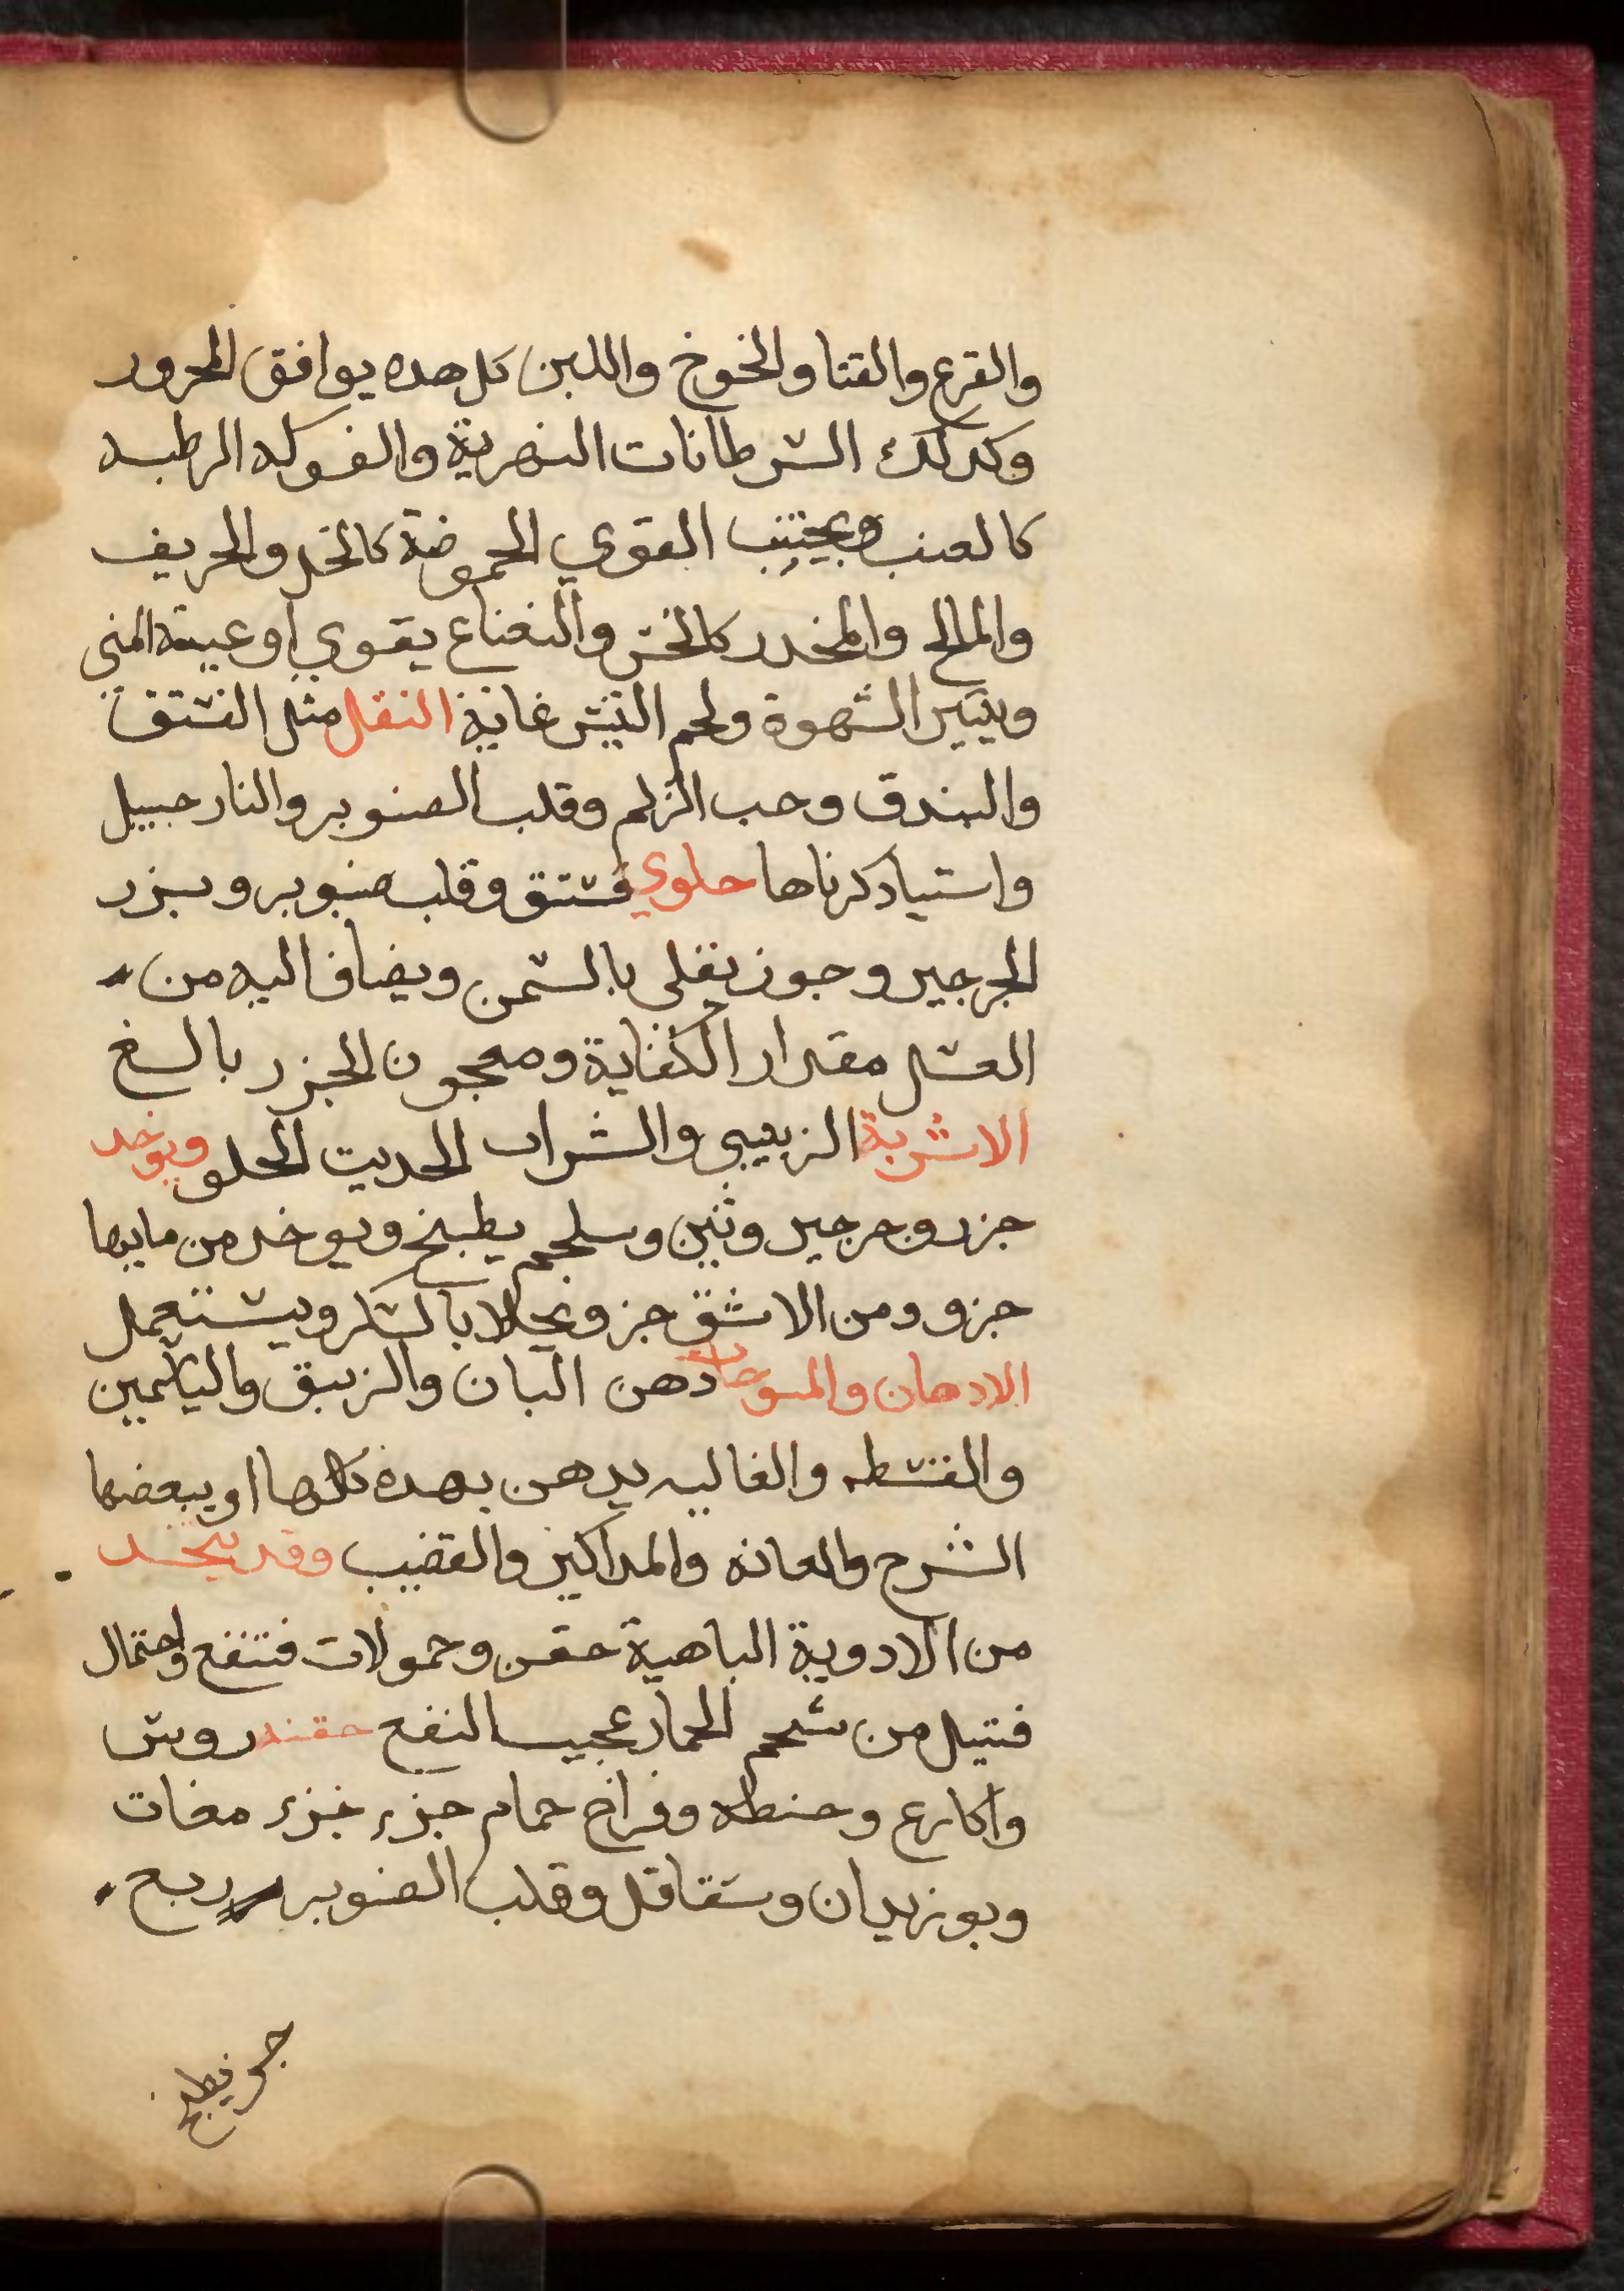 والقرع والقتا والخوخ واللبن كل هده يوافق المحرور
وكدلك السرطانات النهرية والفوكه الرطبه
كالعنب ويجتنب القوي الحموضة كالخل والحريف
والمالح والمخدر كالخس والنعناع يقوي اوعية المني
ويتير الشهوة ولحم التيس غاية النقل مثل الفستق
والبندق وحب الزلم وقلب الصنوبر والنارجبيل
واستيا دكرناها حلوي فستق وقلب صنوبر وبزر
الجرجير وجوز يقلى بالسمن ويضاف اليه من
العسل مقدار الكفاية ومعجون الجزر بالغ
الاشربة الزبيبي والشراب الحديت الحلو ويوخد
جزر وجرجير وتين وسلجم يطبخ ويوخد من مايها
جزو ومن الاشق جزو يحلا بالسكر ويستعمل
الادهان والمسوحات دهن البان والزنبق والياسمين
والقسطه والغاليه يدهن بهده كلها او ببعضها
الشرج والعانه والمداكير والقضيب وقد يتخد
من الادوية الباهية حقن وحمولات فتنفع واحتمال
فتيل من شحم الحمار عجيب النفع حقنه روس
واكارع وحنطه وفراخ حمام جزء جزء مغات
وبوزيدان وشقاقل وقلب الصنوبر ربع
جزو يطبخ